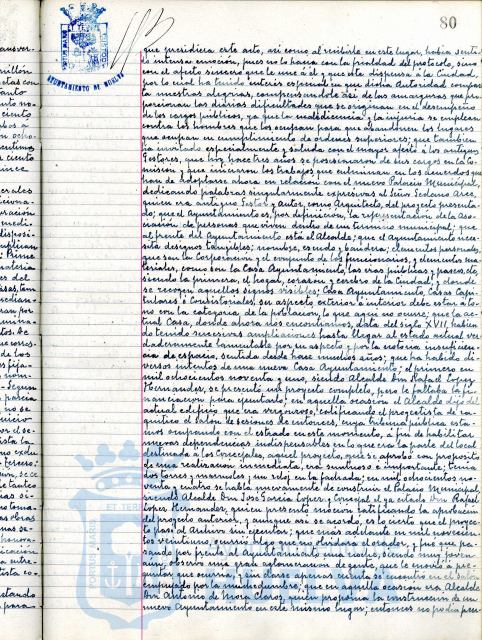 80
AYUNTAMIENTO DE HUELVA
que presidiera este acto, así como al recibirla en este lugar, había senti-
do intensa emoción, pues no lo hacía con la frialdad del protocolo, sino
con el afecto sincero que le une a él y que este dispensa a la Ciudad,
por lo cual ha tenido interés especial en que dicha Autoridad compar-
ta nuestras alegrías, compensándole así de las amarguras que pro-
porcionan las diarias dificultades que se originan en el desempeño
de los cargos públicos, ya que la maledicencia y la injuria se emplean
contra los hombres que los ocupan para que abandonen los lugares
que ocupan en cumplimiento de órdenes superiores; que también
ha invitado especialmente y saluda con el mayor afecto a los antiguos
Gestores, que hoy hace tres años se posesionaron de sus cargos en la Co-
misión y que hicieron los trabajos en los acuerdos que
han de adoptarse ahora en relación con el nuevo Palacio Municipal,
dedicando palabras singularmente expresivas al Señor Sedano Arce,
quien era antiguo Gestor y Autor, como Arquitecto, del proyecto presenta-
do; que el Ayuntamiento es, por definición, la representación de la Aso-
ciación de personas que viven dentro de un término municipal; que
al frente del Ayuntamiento está el Alcalde; que el Ayuntamiento nece-
sita designos tangibles; nombre, escudo y bandera; elementos personales,
que son la Corporación y el conjunto de los funcionarios, y elementos ma-
teriales, como son la Casa Ayuntamiento, las vías públicas y paseos, etc,
siendo la primera, el hogar, corazón y cerebro de la Ciudad, y donde
se recogen aquellos signos visibles; Casa Ayuntamiento, Casas Capi-
tulares o Consistoriales, su aspecto exterior e interior debe estar a to-
no con la categoría de la población, lo que aquí no ocurre; que la ac-
tual Casa, donde ahora nos encontramos, data del siglo XVII, habien-
do tenido sucesivas ampliaciones hasta llegar al estado actual ver-
daderamente lamentable por su aspecto y por la notoria insuficien-
cia de espacio, sentida desde hace muchos años; que ha habido di-
versos intentos de una nueva Casa Ayuntamiento; el primero en
mil ochocientos noventa y uno, siendo Alcalde Don Rafael López
Hernández, se presentó un proyecto completo, pero le faltaba la fi-
nanciación para ejecutarlo; en aquella ocasión el Alcalde dijo del
actual edificio que era vergonzoso, calificando el progetista de ra-
quítico el Salón de sesiones de entonces, cuya tribuna pública esta-
mos ocupando con el estrado en este momento, a fin de habilitar
nuevas dependencias indispensables en lo que era la parte del local
destinada a los Concejales; aquel proyecto, que se aprobó con propósito
de una realización inmediata, era suntuoso e importante; tenía
dos torres y mármoles y un reloj en la fachada; en mil ochocientos no-
venta y cuatro se habla nuevamente de construir el Palacio Municipal,
siendo Alcalde Don José García López y Concejal el ya citado Don Rafael
López Hernández, quien presentó moción ratificando la aprobación
del proyecto anterior, y aunque así se acordó, es lo cierto que el proyec-
to pasó al Archivo sin ejecutar; que más adelante en mil novecien-
tos veintiuno, ocurrió algo que no olvidará el orador, y fué que pa-
sando por frente al Ayuntamiento una noche, siendo muy joven
aún, observó una gran aglomeración de gente, que le movió a pre-
guntar que ocurría; y sin darse apenas cuenta se encontró en el Salón
empujado por la muchedumbre; que en aquella ocasión era Alcalde
Don Antonio de Mora Claros, quien proponía la construcción de un
nuevo Ayuntamiento en este mismo lugar; entonces no podía pen-